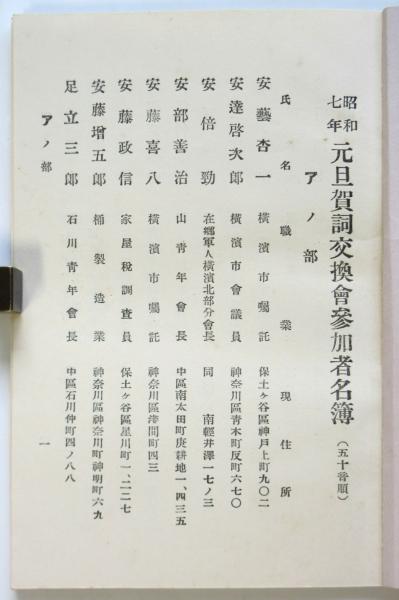 昭和七年 元旦賀詞交換會參加者名簿 (五十音順)
アノ部
氏名 職業 現住所
安藝杏一 橫濱市囑託 保土ヶ谷區神戸上町九〇二
安達啓次郎 橫濱市會議員 神奈川區青木町反町六七〇
安倍勁 在鄉軍人橫濱北部分會長 同 南輕井澤一七ノ三
安部善治 山青年會長 中區南太田町庚耕地一、四三五
安藤喜八 橫濱市囑託 神奈川區 町四三
安藤政信 家屋稅調查員 保土ヶ谷區星川町一、二二七
安藤增五郎 桶製造業 神奈川區神奈川町神明町六九
足立三郎 石川青年會長 中區石川仲町四ノ八八
アノ部 一